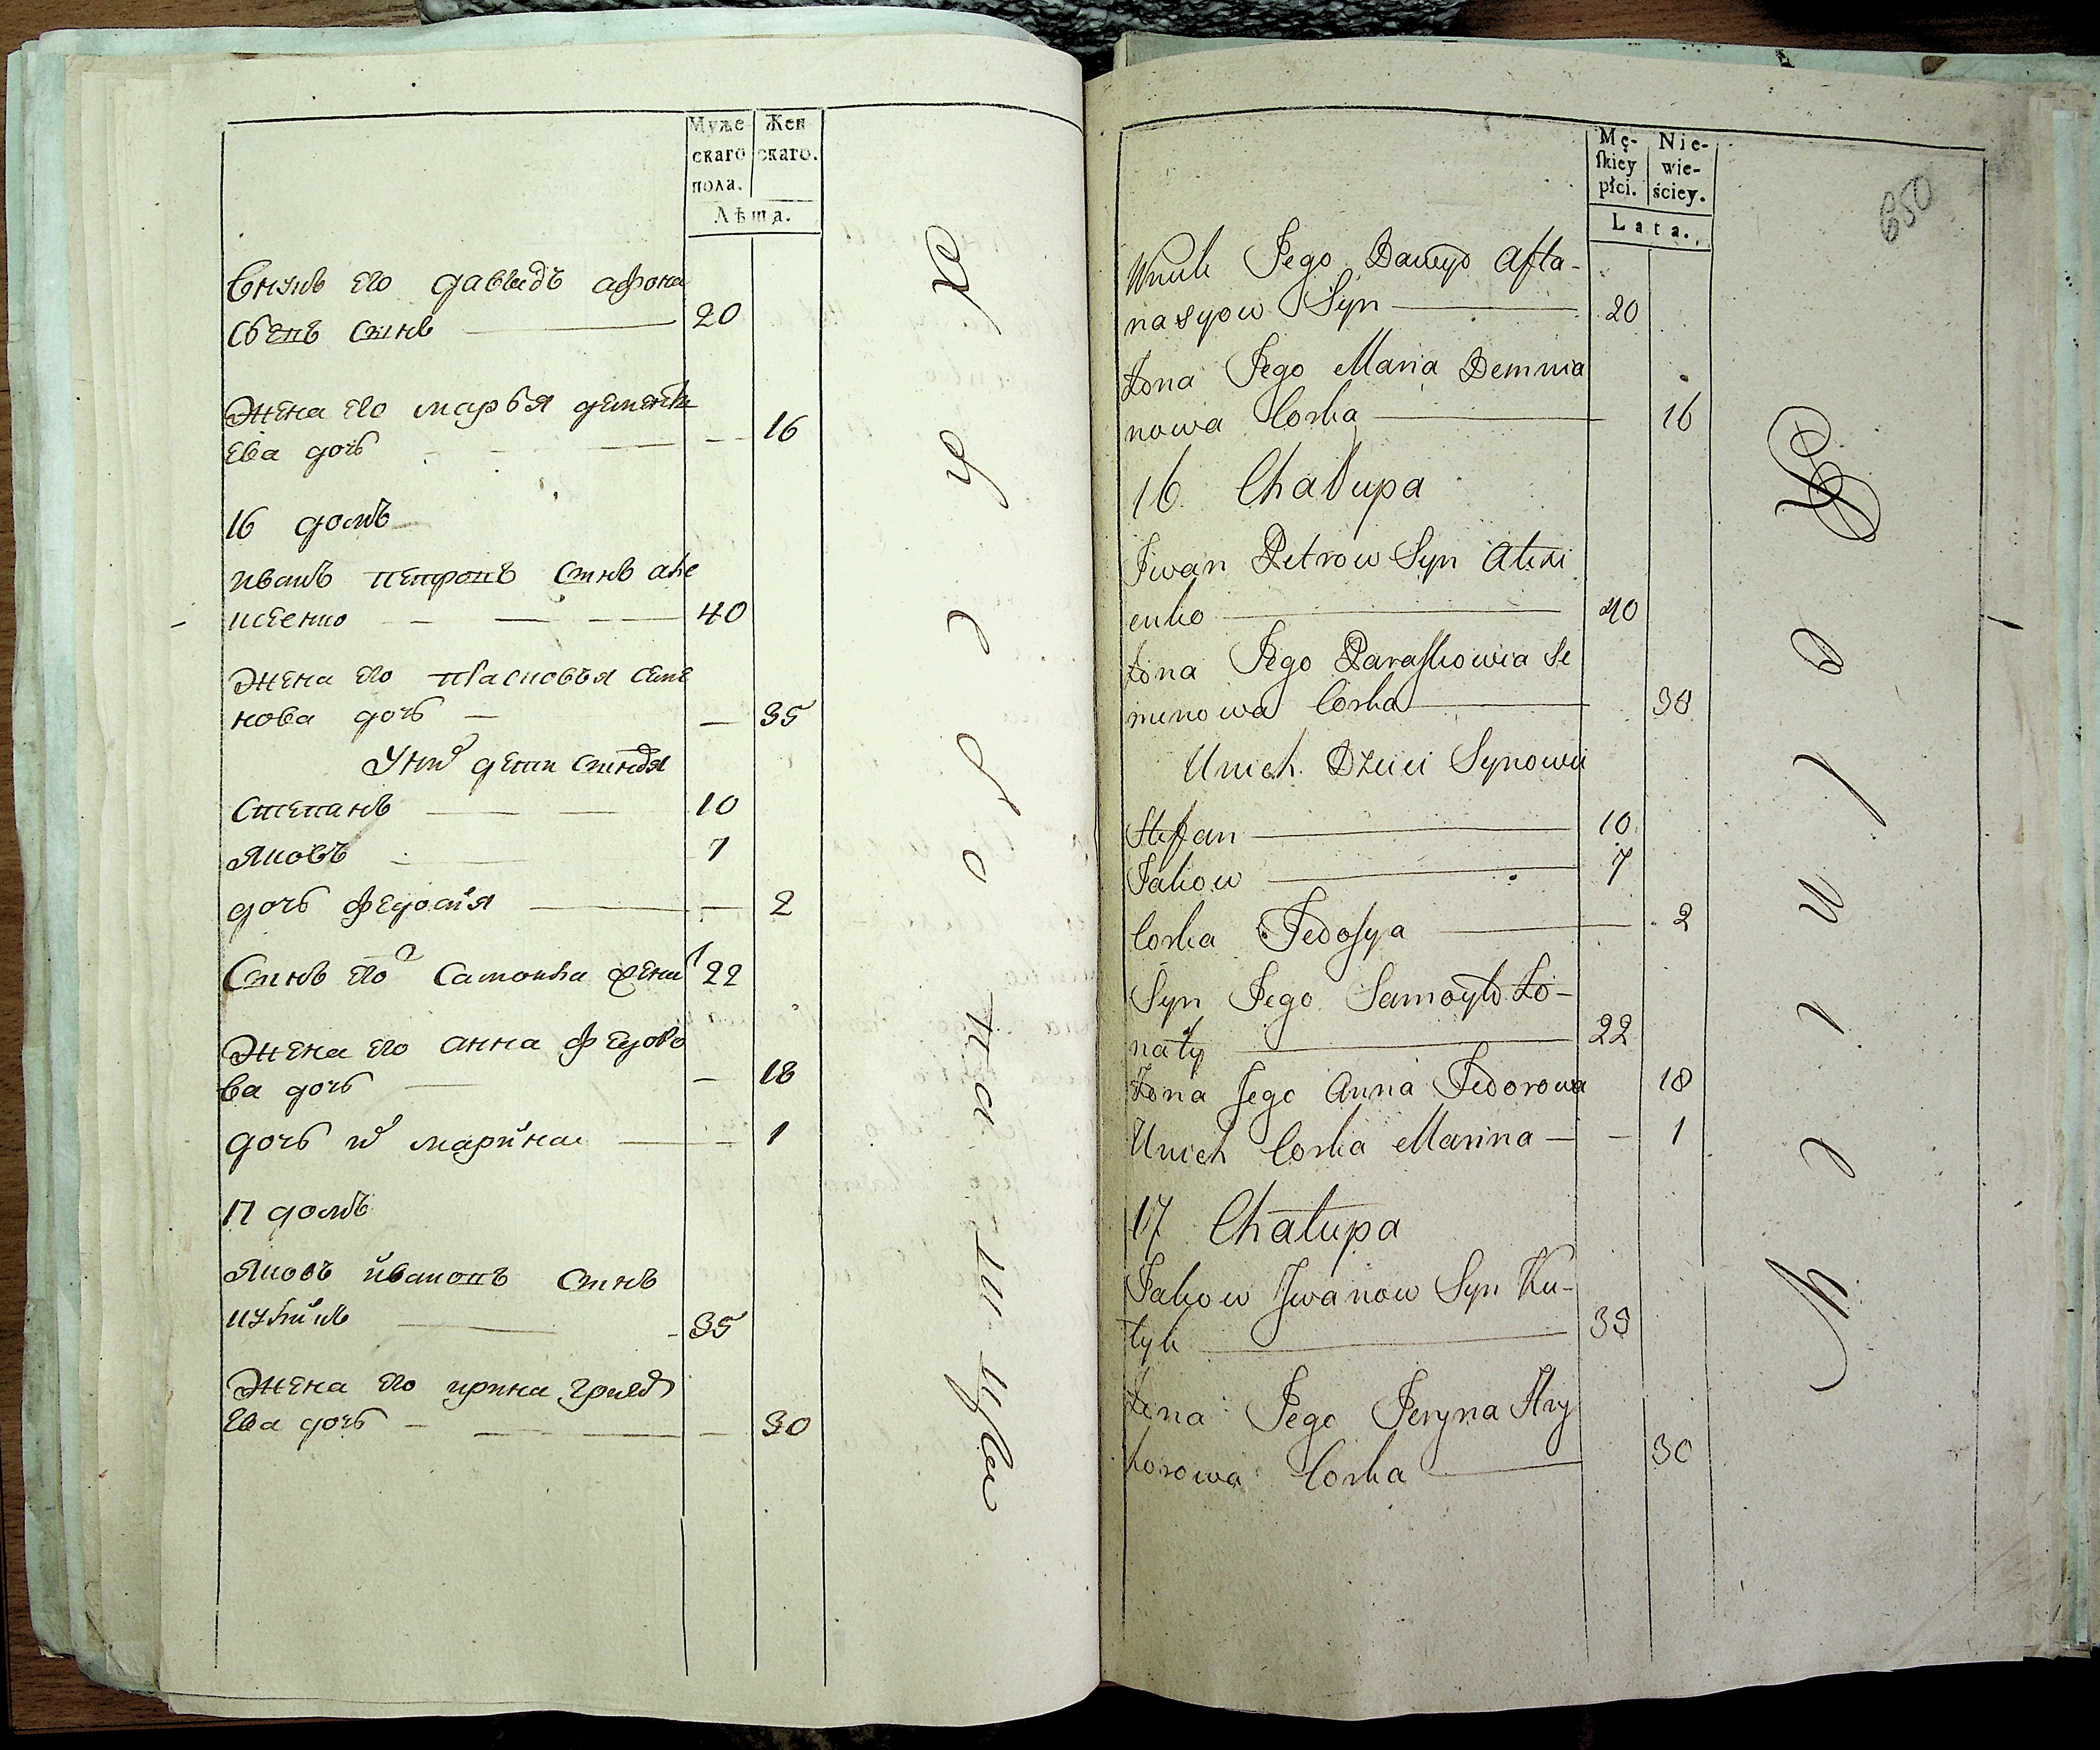 Муже-
скаго
пола.
Жен
скаго.
Лѣта.
внукъ его давыдъ афона
сьевъ сынъ 20
жена его марья дементь
ева дочь 16
16 домъ
иванъ петровъ сынъ але
ксеенко 40
жена его прасковья семе
нова дочь 35
У них дети сыновья
степанъ 10
яковъ 7
дочь федосия 2
Сынъ его самойла женат 22
жена его анна федоро
ва дочь 18
дочь их марина 1
17 домъ
яковъ ивановъ сынъ
кулик 35
жена его ирина григорь
ева дочь 30
Mę-
skiey
płci.
Nie-
wie-
ściey.
Lata.
650
Wnuk Jego Dawyd Afta-
nasyow Syn 20
Żona Jego Maria Demnia
nowa Corka 16
16 Chałupa
Jwan Petrow Syn Alexi
enko 40
Żona Jego Paraskowia Se
menowa Corka 38
Unich Dzieci Synowie
Stefan 10
Jakow 7
Corka Fedosya 2
Syn Jego Samoyło Żo-
naty 22
Żona Jego Anna Fedorowa 18
Unich Corka Marina 1
17 Chałupa
Jakow Jwanow Syn Ku-
lyk 35
Żona Jego Jeryna Hry
horowa Corka 30